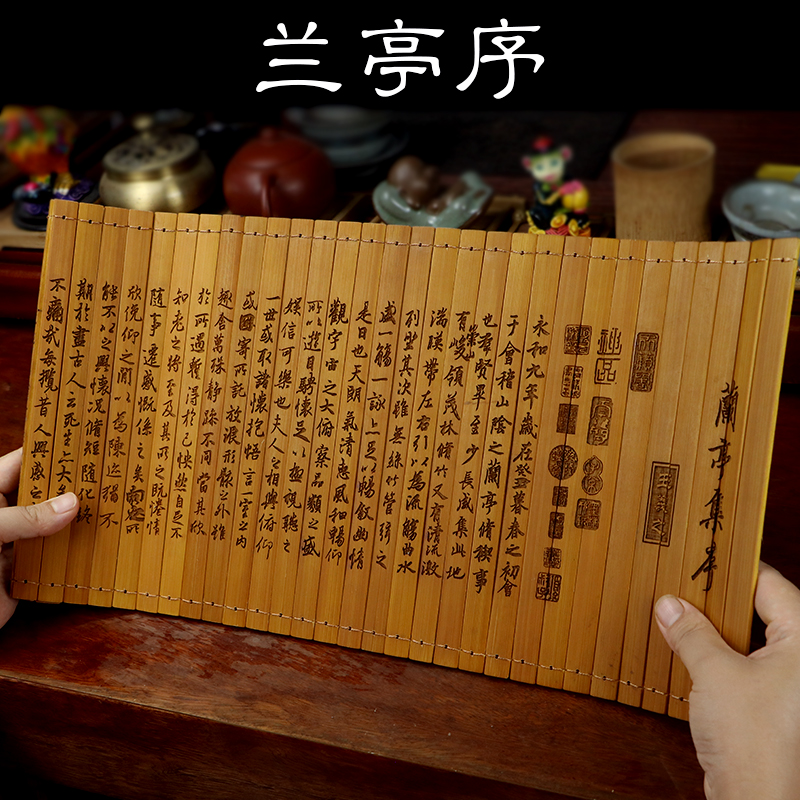 兰亭序
蘭亭集序
永和九年歲在癸丑暮春之初會
于會稽山陰之蘭亭脩禊事
也羣賢畢至少長咸集此地
有崇山峻領茂林脩竹又有清流激
湍暎帶左右引以為流觴曲水
列坐其次雖無絲竹管弦之
盛一觴一詠上足以暢叙幽情
是日也天朗氣清惠風和暢仰
觀宇宙之大俯察品類之盛
所以遊目騁懷足以極視聽之
娛信可樂也夫人之相與俯仰
一世或取諸懷抱悟言一室之內
或因寄所託放浪形骸之外雖
趣舍萬殊靜躁不同當其欣
於所遇暫得於己快然自足不
知老之將至及其所之既惓情
隨事遷感慨係之矣向之所
欣俛仰之閒以為陳迹猶不
能不以之興懷況脩短隨化終
期於盡古人云死生亦大矣
不痛哉每攬昔人興感之